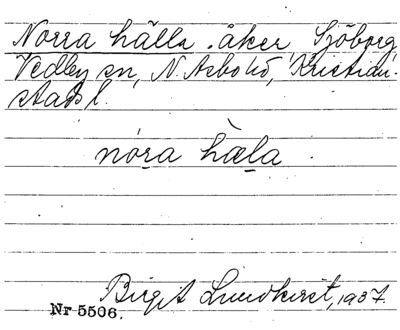 Norra hälla. åker, Sjöborg
Vedby sn, N Åsbo hd, Kristian-
stads l.
nóra hæla.
Birgit Lundkvist, 1937.
Nr 5506.